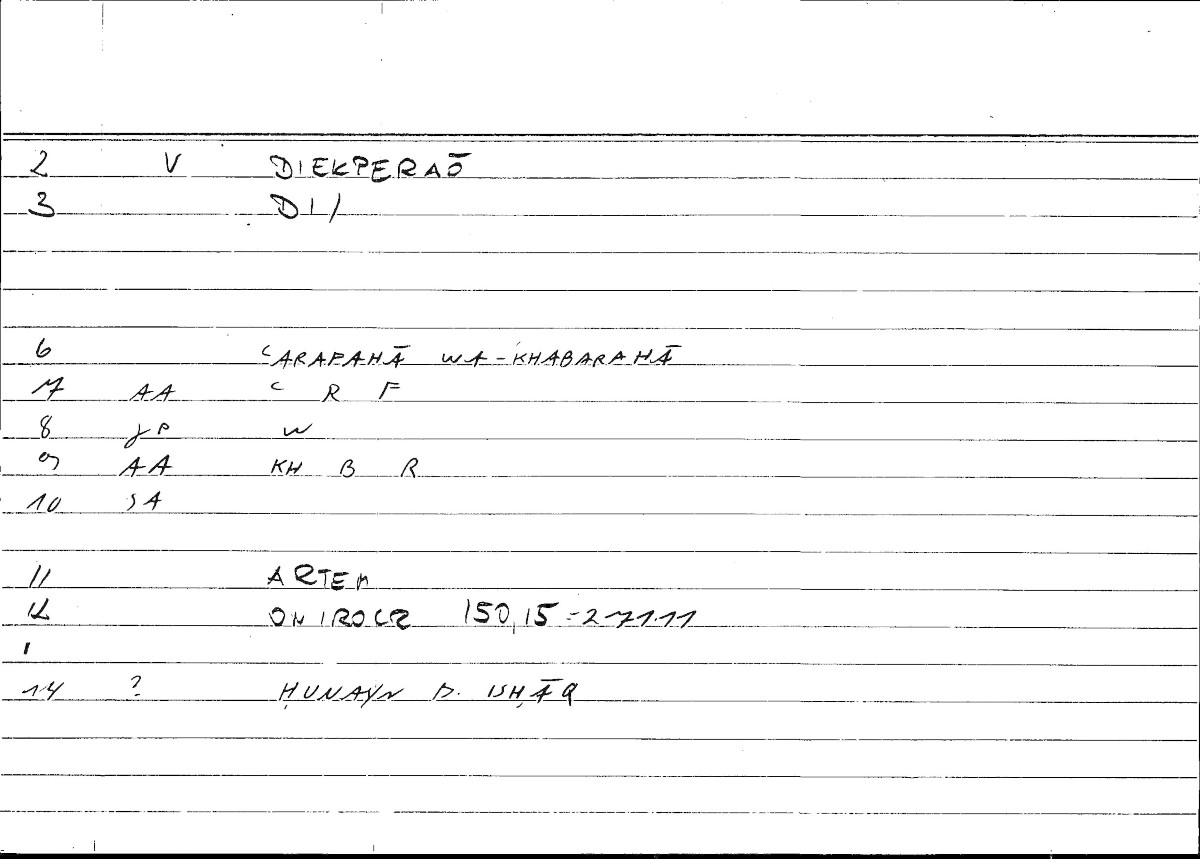 2 V DIEKPERAŌ
3 DI/
6 ʿARAFAHĀ WA-KHABARAHĀ
7 AA ʿ R F
8 JP W
9 AA KH B R
10 SA
11 ARTEM
12 ONIROCR 150,15 = 271.11
14 ? ḤUNAYN B. ISḤĀQ